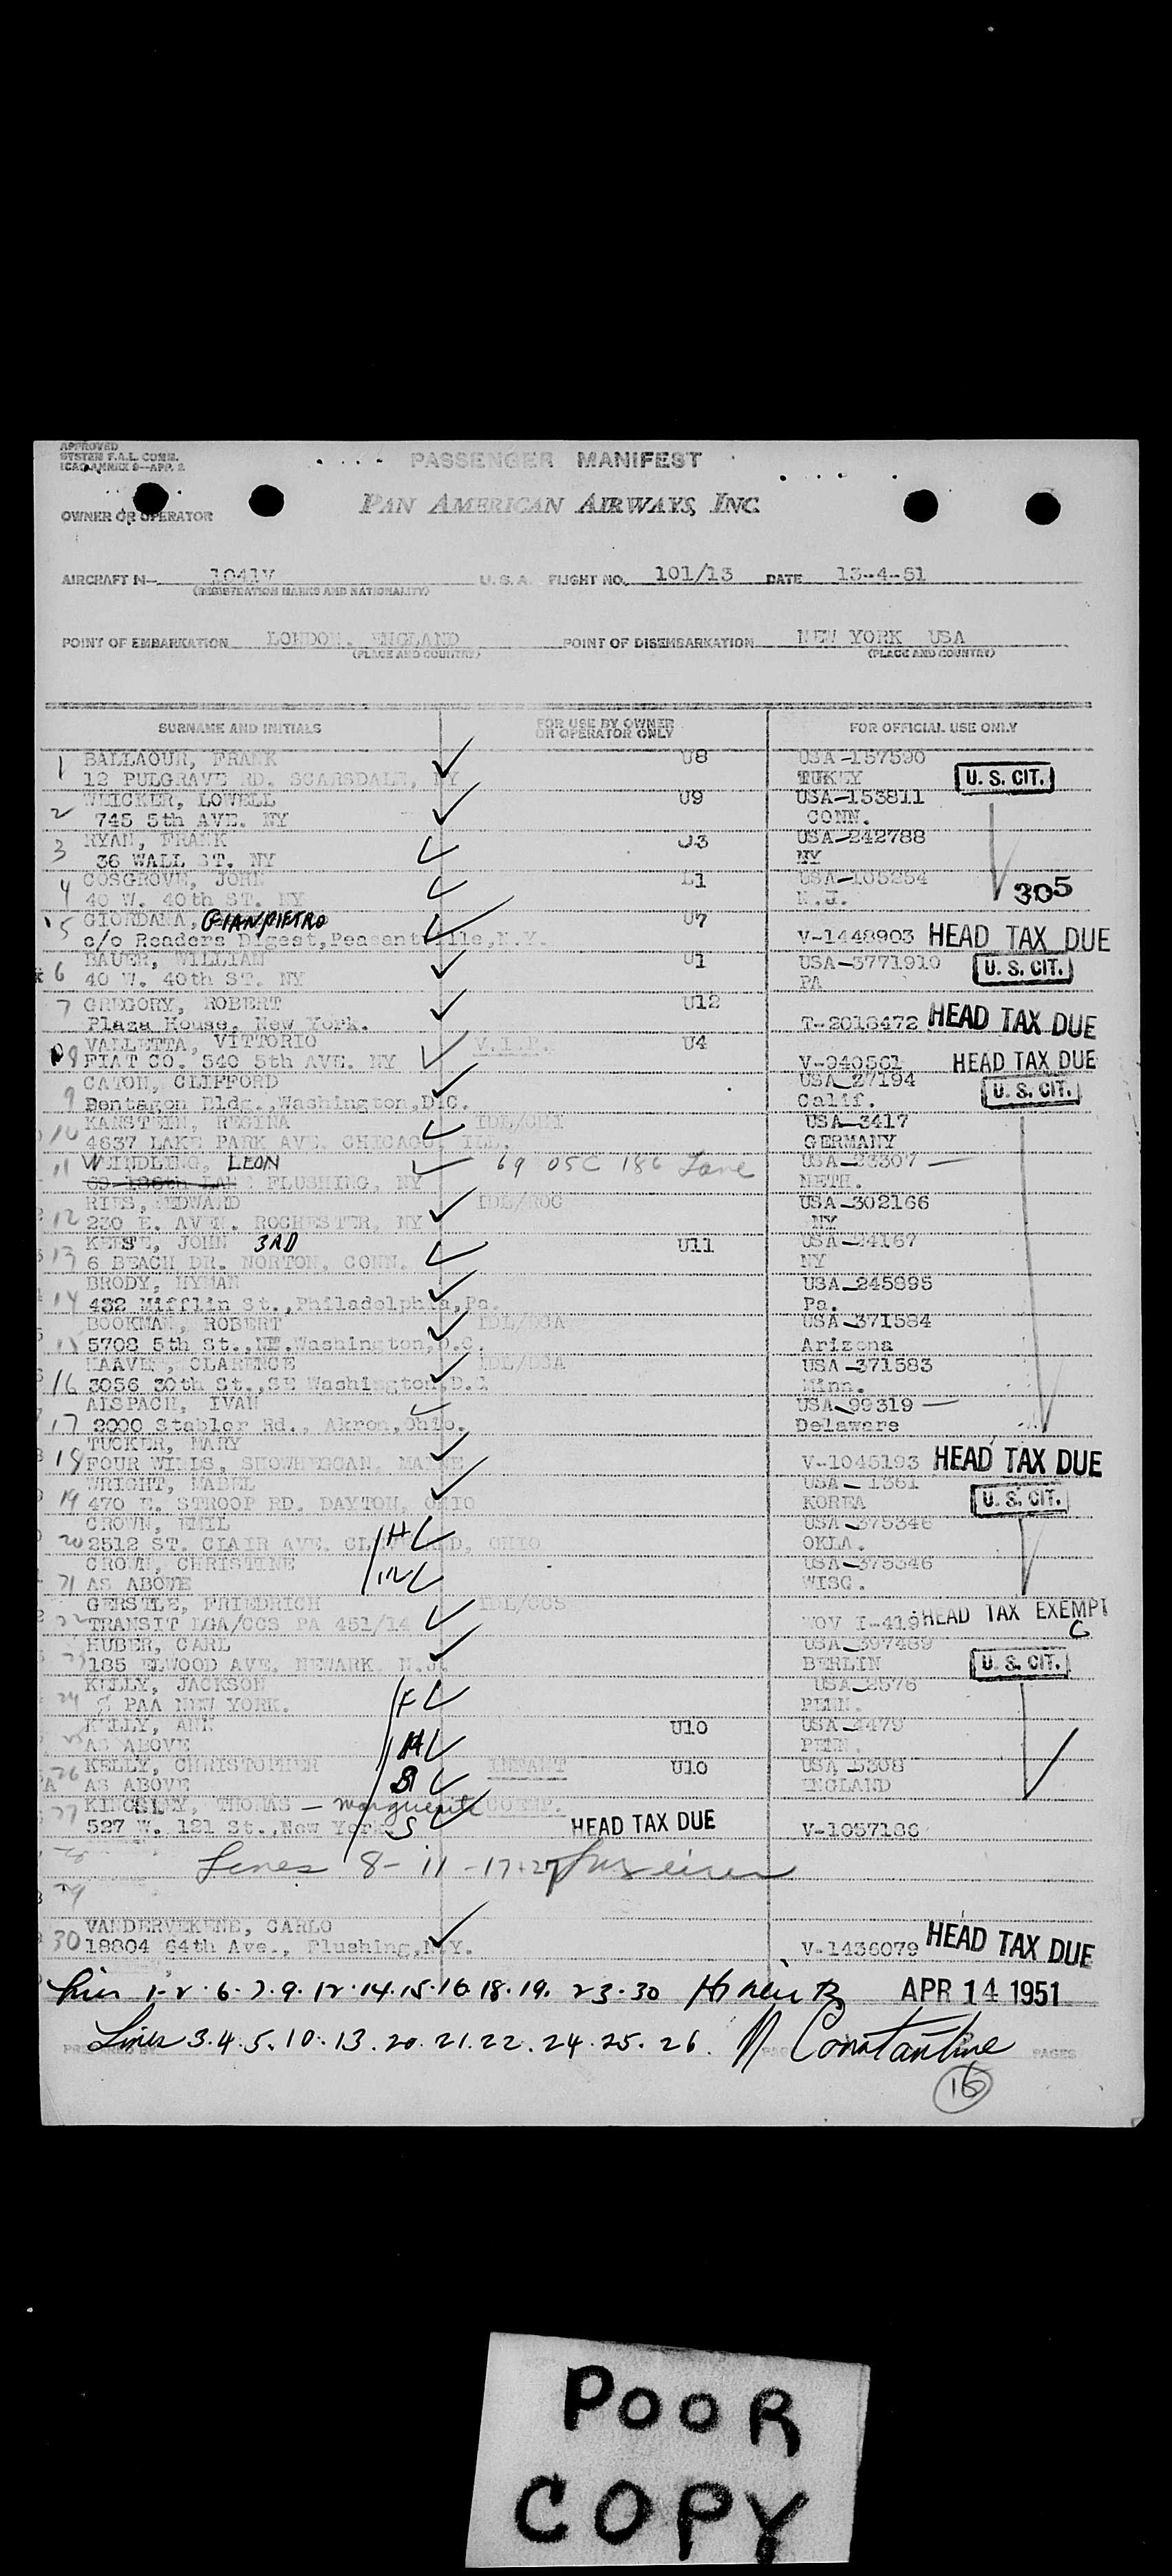 APPROVED
SYSTEM F.A.L. COMM.
ICAO ANNEX 9—APP. 2
PASSENGER MANIFEST
OWNER OR OPERATOR
PAN AMERICAN AIRWAYS, INC.
AIRCRAFT N— 1041V U. S. A. FLIGHT NO. 101/13 DATE 13-4-51
(REGISTRATION MARKS AND NATIONALITY)
POINT OF EMBARKATION LONDON, ENGLAND POINT OF DISEMBARKATION NEW YORK USA
(PLACE AND COUNTRY) (PLACE AND COUNTRY)
SURNAME AND INITIALS FOR USE BY OWNER OR OPERATOR ONLY FOR OFFICIAL USE ONLY
1 BALLAOUR, FRANK U8 USA-157590
12 PULGRAVE RD. SCARSDALE, NY TUKEY U. S. CIT.
2 WEICKER, LOWELL U9 USA-153811
745 5th AVE. NY CONN.
3 RYAN, FRANK U3 USA-242788
36 WALL ST. NY NY
4 COSGROVE, JOHN USA-105254
40 W. 40th ST. NY N.J. 305
5 GIORDANA, GIANPIETRO U7
c/o Readers Digest,Peasantville,N.Y. V-1448903 HEAD TAX DUE
6 BAUER, WILLIAM U1 USA-3771910
40 W. 40th ST. NY PA U. S. CIT.
7 GREGORY, ROBERT U12
Plaza House, New York. T-2016472 HEAD TAX DUE
8 VALLETTA, VITTORIO V.I.P. U4
FIAT CO. 540 5th AVE. NY V-940561 HEAD TAX DUE
9 CATON, CLIFFORD USA-27194
Pentagon Bldg.,Washington,D.C. Calif. U. S. CIT.
10 KANSTEIN, REGINA IDL/CHI USA-3417
4637 LAKE PARK AVE. CHICAGO, ILL. GERMANY
11 WEINDLING, LEON 69 05C 186 Lane USA-23307
69 186th LANE FLUSHING, NY NETH.
12 RIES, EDWARD IDL/ROC USA-302166
230 E. AVEN. ROCHESTER, NY NY
13 KEESE, JOHN 3RD U11 USA-24167
6 BEACH DR. NORTON, CONN. NY
14 BRODY, HYMAN USA-245895
432 Mifflin St.,Philadelphia,Pa. Pa.
15 BOOKMAN, ROBERT IDL/DCA USA-371584
5708 5th St.,NE.Washington,D.C. Arizona
16 HAAVE, CLARENCE IDL/DCA USA-371583
3056 30th St.,SE Washington,D.C Minn.
17 ALSPACH, IVAN USA-99319
2000 Stabler Rd., Akron,Ohio. Delaware
18 TUCKER, MARY
FOUR WINDS, SKOWHEGGAN, MAINE V-1045193 HEAD TAX DUE
19 WRIGHT, MABEL USA-1361
470 E. STROOP RD. DAYTON, OHIO KOREA U. S. CIT.
20 CROWN, EMIL H USA-375346
2512 ST. CLAIR AVE. CLEVELAND, OHIO OKLA.
21 CROWN, CHRISTINE W USA-375346
AS ABOVE WISC.
22 GERSTLE, FRIEDRICH IDL/CCS
TRANSIT LGA/CCS PA 451/14 NOV I-419 HEAD TAX EXEMPT
C
23 HUBER, CARL USA-397489
185 ELWOOD AVE. NEWARK, N.J. BERLIN U. S. CIT.
24 KELLY, JACKSON F USA-2576
% PAA NEW YORK. PENN.
25 KELLY, ANN U10 USA-2479
AS ABOVE M PENN.
26 KELLY, CHRISTOPHER INFANT U10 USA 5308
AS ABOVE S ENGLAND
27 KINGSLEY, THOMAS — Marguerite COTEP.
527 W. 121 St.,New York S HEAD TAX DUE V-1057186
28 Lines 8-11-17+27
29
30 VANDERVEKENE, CARLO
18804 64th Ave., Flushing,N.Y. V-1436079 HEAD TAX DUE
Lines 1-2.6.7.9.12.14.15.16.18.19. 23.30 APR 14 1951
Lines 3.4.5.10.13.20.21.22.24.25.26. N Constantine
PREPARED BY PAGES
16
POOR
COPY